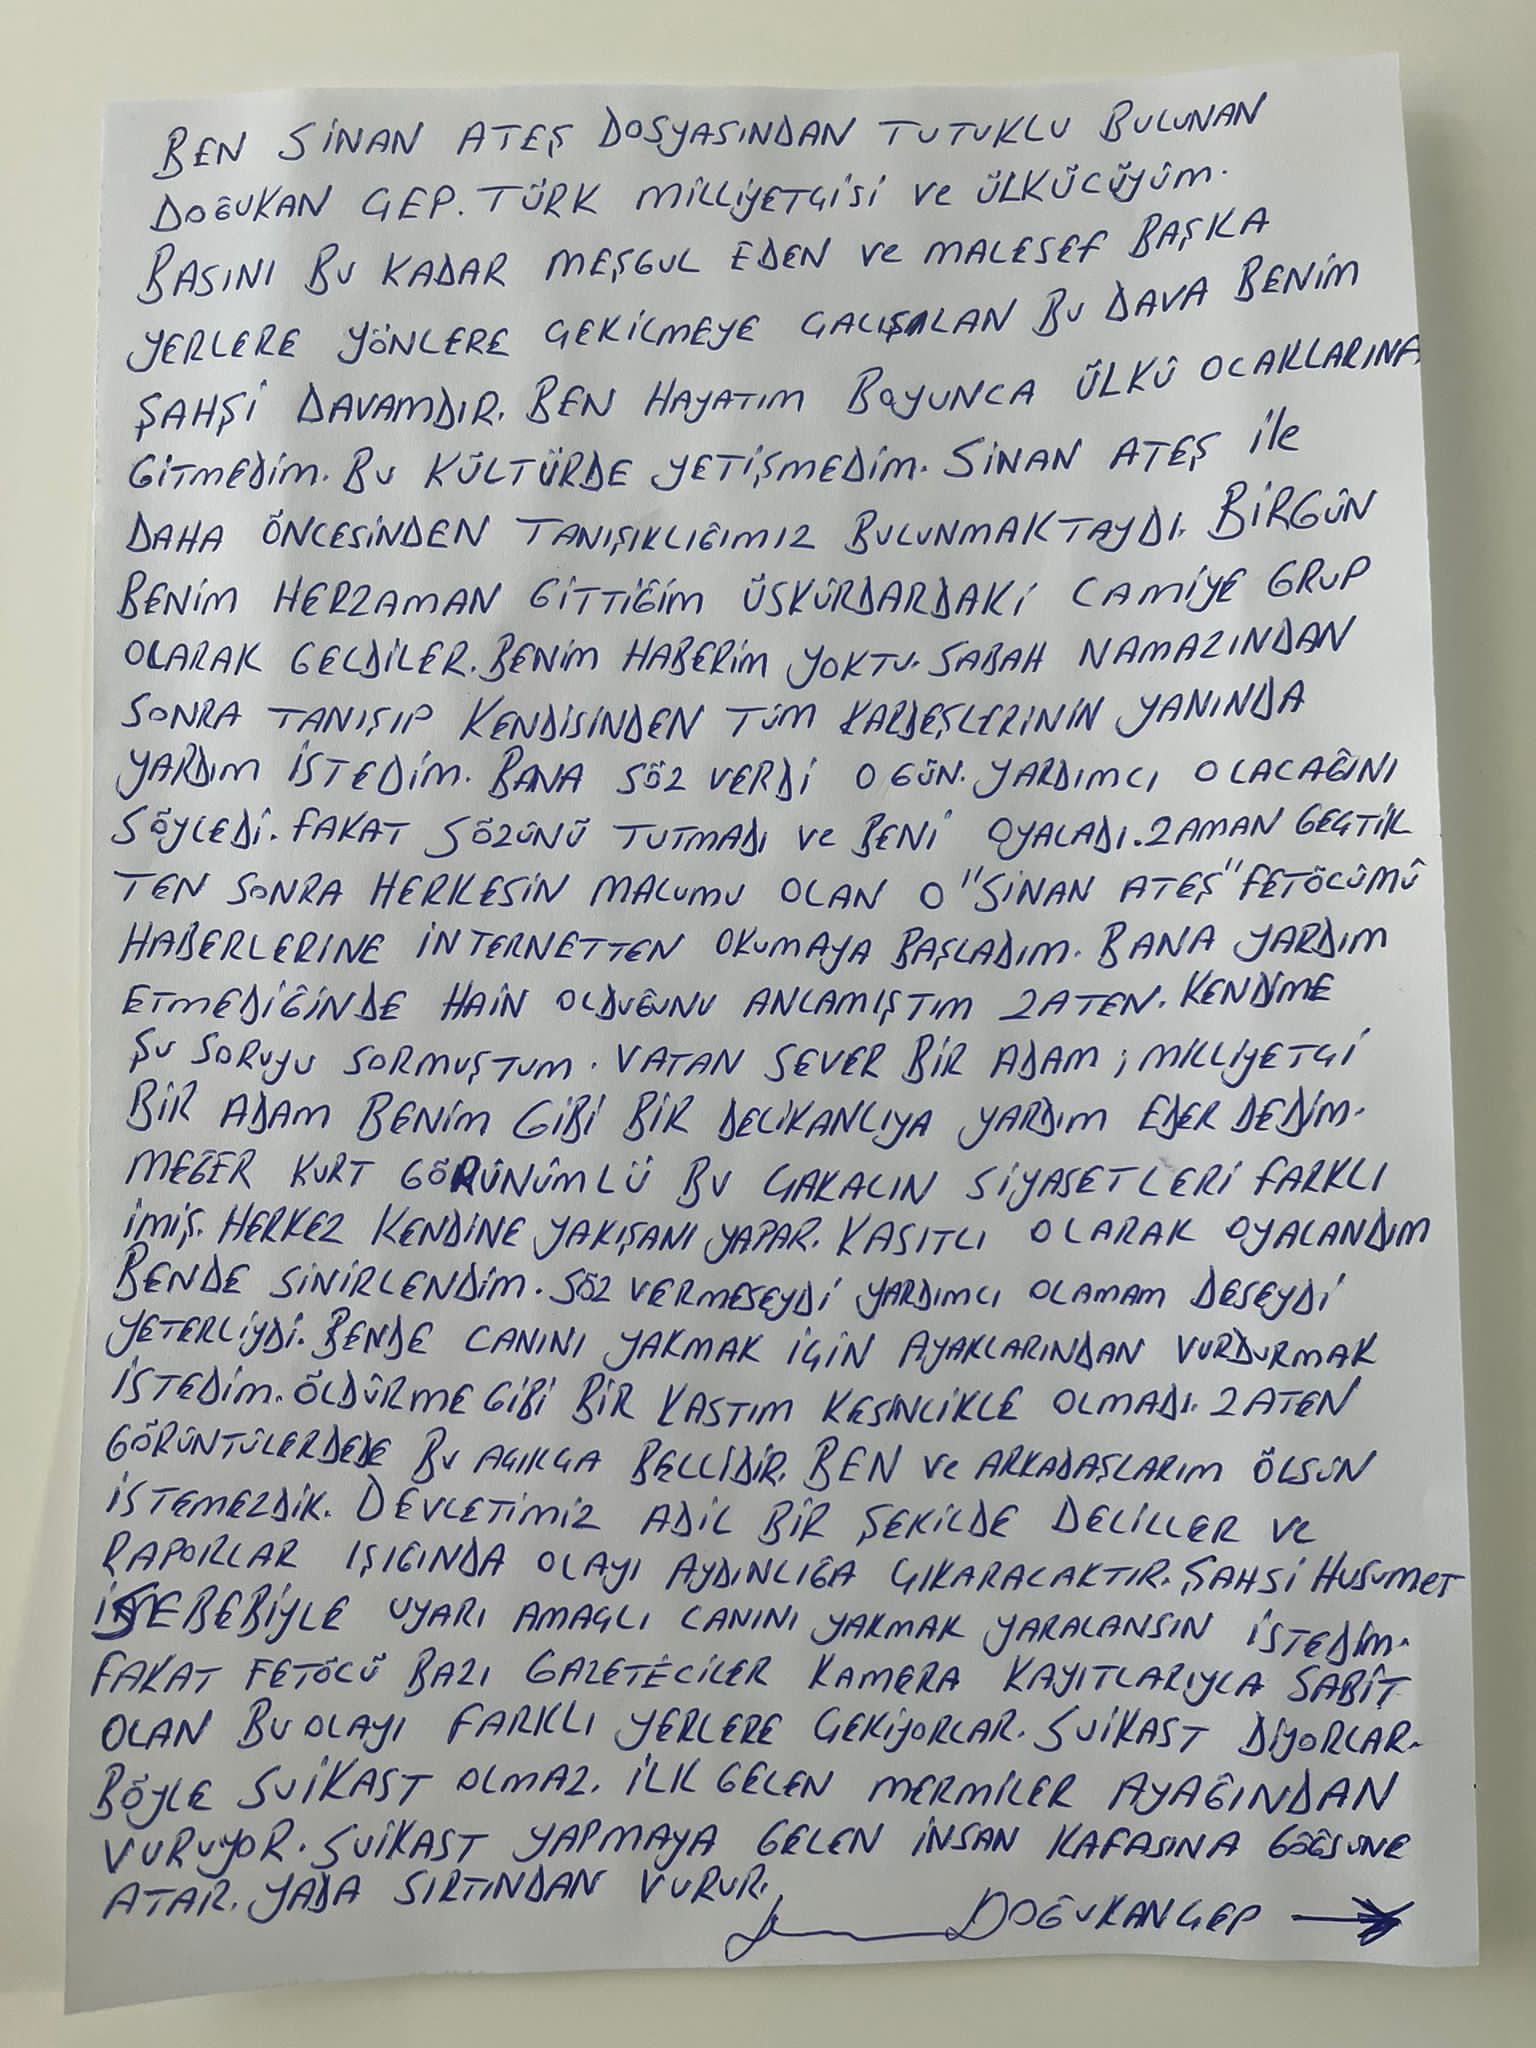 BEN SİNAN ATEŞ DOSYASINDAN TUTUKLU BULUNAN
DOĞUKAN ÇEP. TÜRK MİLLİYETÇİSİ ve ÜLKÜCÜYÜM.
BASINI BU KADAR MEŞGUL EDEN ve MALESEF BAŞKA
YERLERE YÖNLERE ÇEKİLMEYE ÇALIŞILAN BU DAVA BENİM
ŞAHŞİ DAVAMDIR. BEN HAYATIM BOYUNCA ÜLKÜ OCAKLARINA
GİTMEDİM. BU KÜLTÜRDE YETİŞMEDİM. SİNAN ATEŞ ile
DAHA ÖNCESİNDEN TANIŞIKLIĞIMIZ BULUNMAKTAYDI. BİRGÜN
BENİM HERZAMAN GİTTİĞİM ÜSKÜRDARDAKİ CAMİYE GRUP
OLARAK GELDİLER. BENİM HABERİM YOKTU. SABAH NAMAZINDAN
SONRA TANIŞIP KENDİSİNDEN TÜM KARDEŞLERİNİN YANINDA
YARDIM İSTEDİM. BANA SÖZ VERDİ O GÜN. YARDIMCI OLACAĞINI
SÖYLEDİ. FAKAT SÖZÜNÜ TUTMADI ve BENİ OYALADI. ZAMAN GEÇTİK
TEN SONRA HERKESİN MALUMU OLAN O "SİNAN ATEŞ" FETÖCÜMÜ
HABERLERINE İNTERNETTEN OKUMAYA BAŞLADIM. BANA YARDIM
ETMEDİĞİNDE HAİN OLDUĞUNU ANLAMIŞTIM ZATEN. KENDİME
ŞU SORUYU SORMUŞTUM. VATAN SEVER BİR ADAM; MİLLİYETÇİ
BİR ADAM BENİM GİBİ BİR DELİKANLIYA YARDIM EDER DEDİM.
MEĞER KURT GÖRÜNÜMLÜ BU ÇAKALIN SİYASETLERİ FARKLI
İMİŞ. HERKEZ KENDİNE YAKIŞANI YAPAR. KASITLI OLARAK OYALANDIM
BENDE SİNİRLENDİM. SÖZ VERMESEYDİ YARDIMCI OLAMAM DESEYDİ
YETERLİYDİ. BENDE CANINI YAKMAK İÇİN AYAKLARINDAN VURDURMAK
İSTEDİM. ÖLDÜRME GİBİ BİR KASTIM KESİNLİKLE OLMADI. ZATEN
GÖRÜNTÜLERDEDE BU AÇIKÇA BELLİDİR. BEN ve ARKADAŞLARIM ÖLSÜN
İSTEMEZDİK. DEVLETİMİZ ADİL BİR ŞEKİLDE DELİLLER ve
RAPORLAR IŞIĞINDA OLAYI AYDINLIĞA ÇIKARACAKTIR. ŞAHSİ HUSUMET
SEBEBİYLE UYARI AMAÇLI CANINI YAKMAK YARALANSIN İSTEDİM.
FAKAT FETÖCÜ BAZI GAZETECİLER KAMERA KAYITLARIYLA SABİT
OLAN BU OLAYI FARKLI YERLERE ÇEKİYORLAR. SUİKAST DİYORLAR.
BÖYLE SUİKAST OLMAZ. İLK GELEN MERMİLER AYAĞINDAN
VURUYOR. SUİKAST YAPMAYA GELEN İNSAN KAFASINA GÖĞSÜNE
ATAR. YADA SIRTINDAN VURUR.
DOĞUKAN ÇEP →